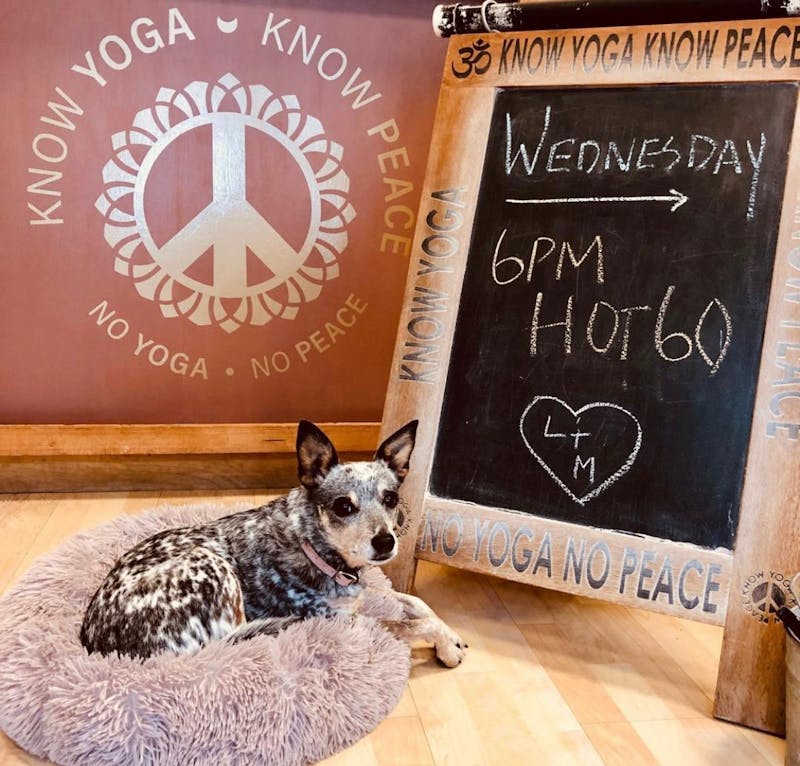 KNOW YOGA • KNOW PEACE
NO YOGA • NO PEACE
ॐ KNOW YOGA KNOW PEACE
KNOW YOGA
WEDNESDAY
6PM
HOT 60
L+M
KNOW PEACE
NO YOGA NO PEACE